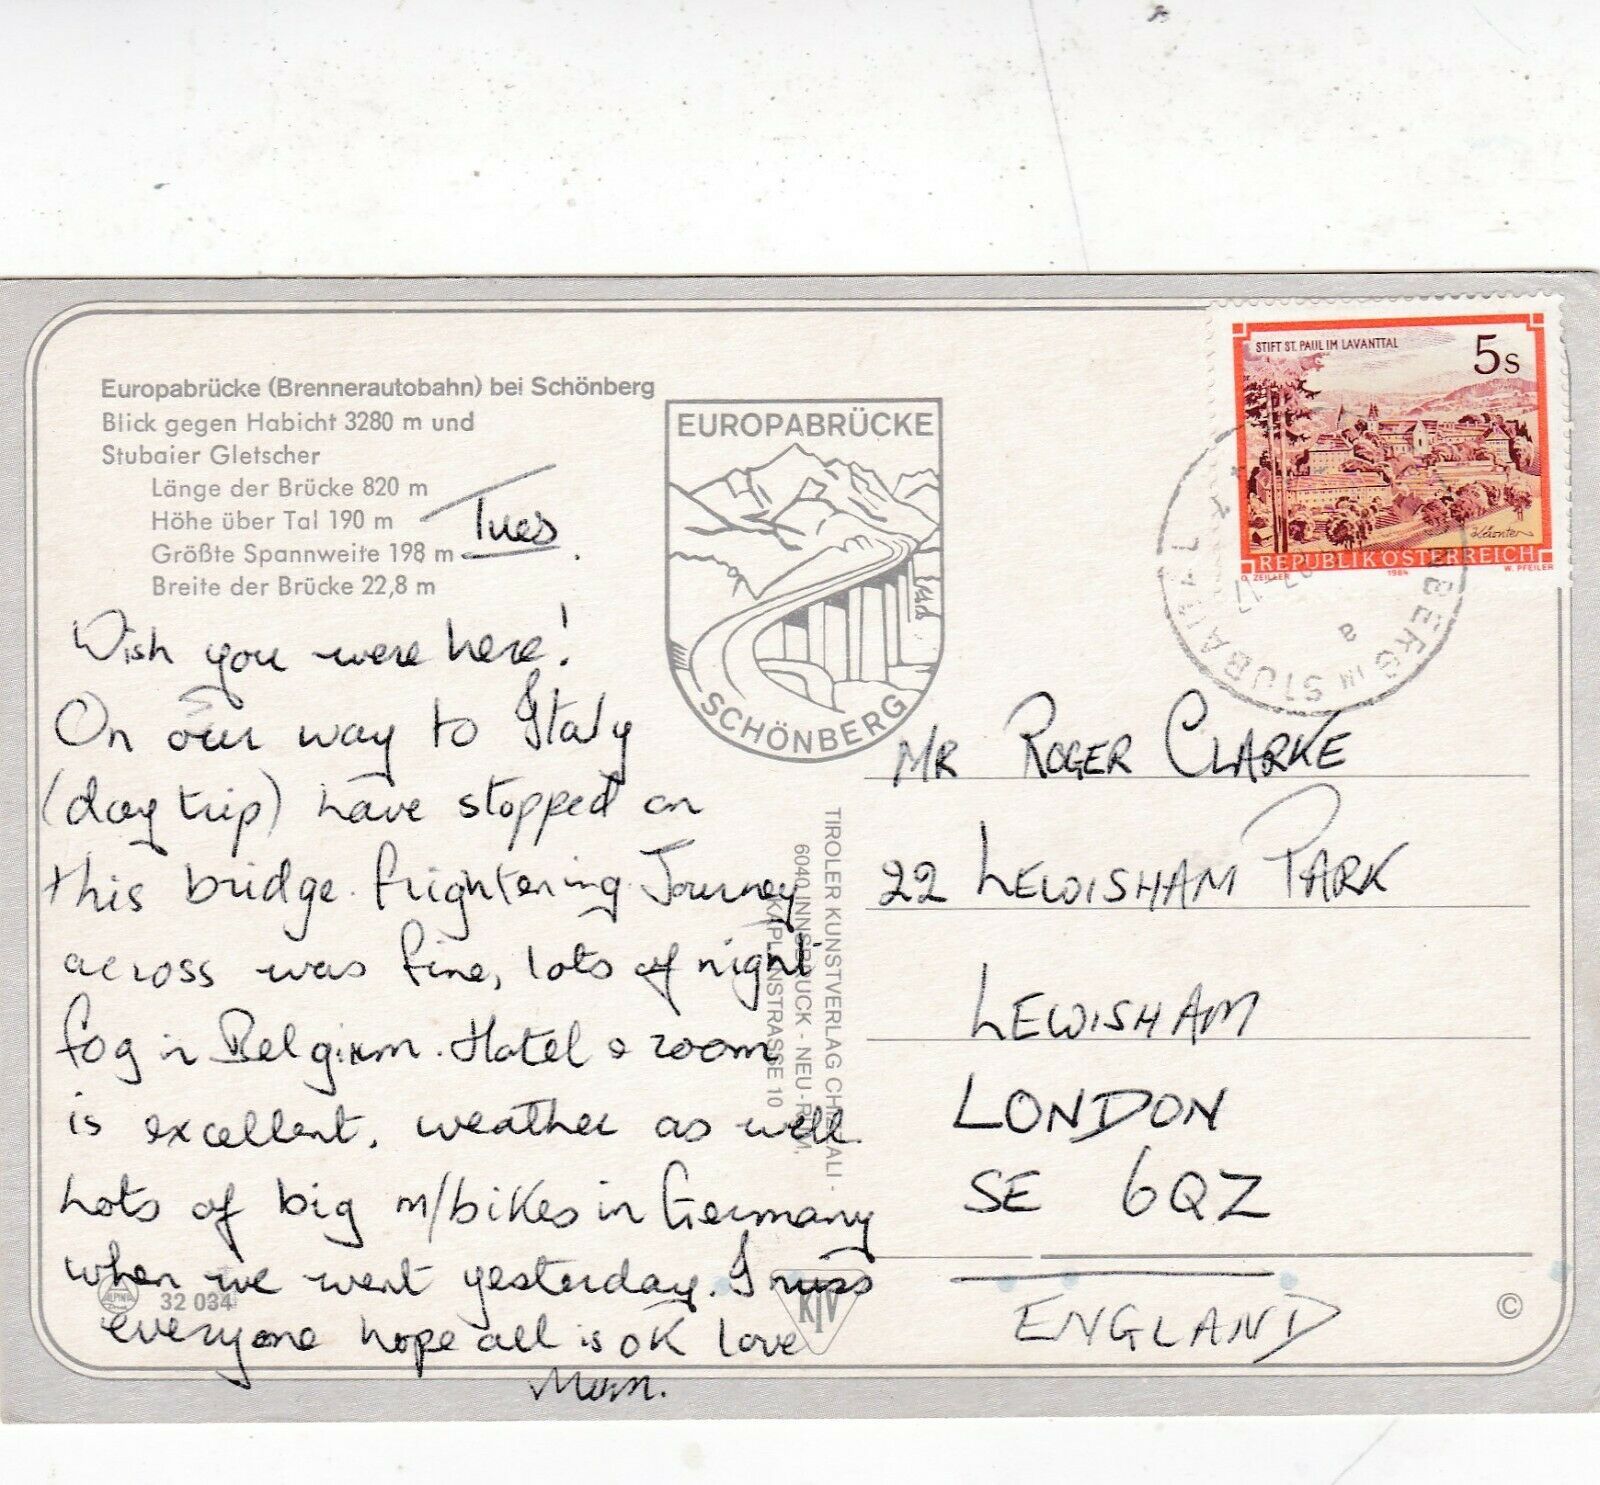 Europabrücke (Brennerautobahn) bei Schönberg
Blick gegen Habicht 3280 m und
Stubaier Gletscher
Länge der Brücke 820 m
Höhe über Tal 190 m
Größte Spannweite 198 m
Breite der Brücke 22,8 m
Tues.
Wish you were here!
On our way to Italy
(day trip) have stopped on
this bridge. frightening. Journey
across was fine, lots of night
fog in Belgium. Hotel & room
is excellent, weather as well.
Lots of big m/bikes in Germany
when we went yesterday. I miss
everyone hope all is OK love
Mum.
32 034
EUROPABRÜCKE
SCHÖNBERG
TIROLER KUNSTVERLAG
6040 INNSBRUCK - NEU-RUM,
KAPLANSTRASSE 10
KTV
STIFT ST. PAUL IM LAVANTTAL
5s
REPUBLIK ÖSTERREICH
O. ZEILLER 1984 W. PFEILER
BERG IM STUBAITAL
a
MR ROGER CLARKE
22 LEWISHAM PARK
LEWISHAM
LONDON
SE 6QZ
ENGLAND
©